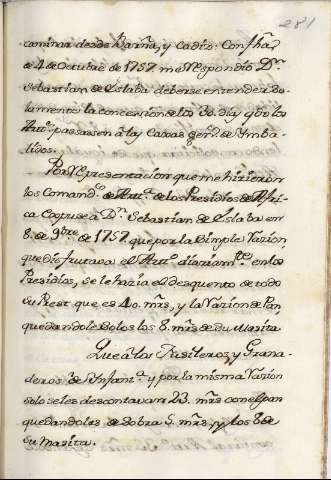 281
caminar desde Barña, y Cadiz. Con fha
de 4 de Octubre de 1757 me respondió Dn.
Sebastian de Eslaba deberse entender so-
lamente la concesion de los 30. dias q̃ de los
Artos. passassen à las Casas de Ymba-
lidos.
Por Representacion que me hizieron
los Comandtes. de Artia. de los Presidios de Afri-
ca Expuse à Dn. Sebastian de Eslaba en
8. de 9bre. de 1757. que por la Simple Razion,
que disfrutava el Arto. diariamte. en los
Presidios, se le hazia el desquento de todo
su Prest que es 40. mrs, y la Razion de Pan,
quedandole solos los 8. mrs de su Masita
Que à los Fusileros, y Grana-
deros de Infanta. y por la misma Razion
solo se les descontavan 23. mrs con el pan
quedandoles de sobra 5. mrs, y los 8 de
su Masita.